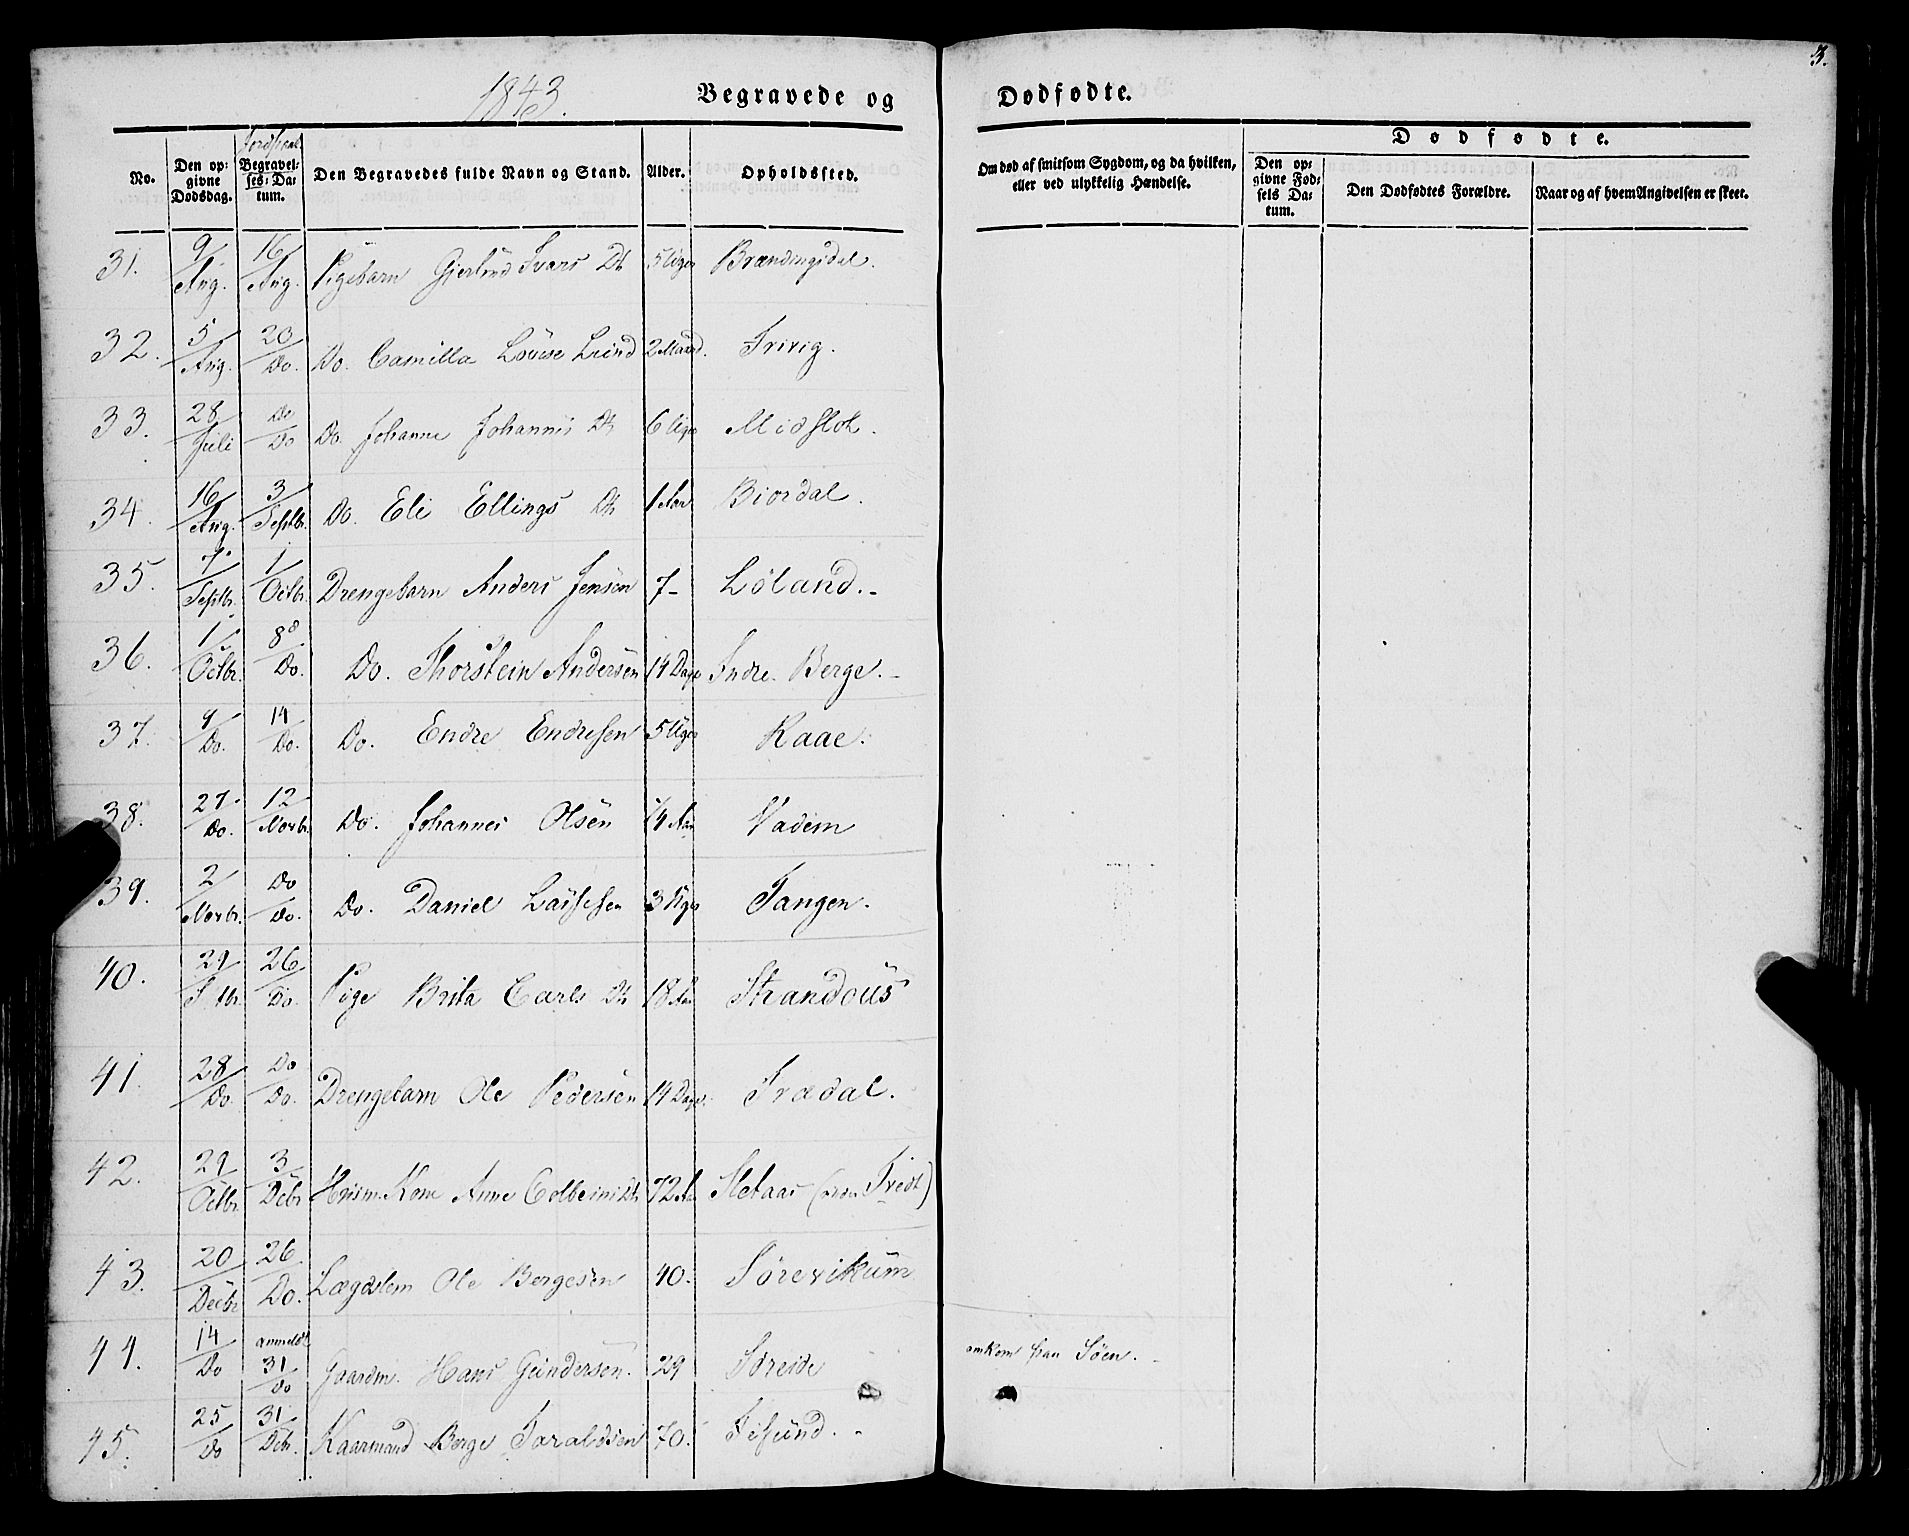 1843.
Begravede og
Dødfødte.
3.
No.
Den op-
givne
Dødsdag.
Jordfæst.
Begravel-
ses-Da-
tum.
Den Begravedes fulde Navn og Stand.
Alder.
Opholdssted.
Om død af smitsom Sygdom, og da hvilken,
eller ved ulykkelig Hændelse.
Dødfødte.
Den op-
givne Fød-
sels Da-
tum.
Den Dødfødtes Forældre.
Naar og af hvem Angivelsen er skeet.
31. 9/Aug. 16/Aug. Pigebarn Gjertrud Ivars Dt 5 Uger Brændingsdal.
32. 5/Aug. 20/Do. Do. Camilla Lovise Lund 2 Maand. Trivig.
33. 28/Juli Do/Do Do. Johanne Johannis Dt 6 Uger Midslot.
34. 16/Aug. 3/Septbr. Do. Eli Ellings Dt 1 Aar Biordal.
35. 7/Septbr. 1/Octbr. Drengebarn Anders Jensen 7 - Løland. -
36. 1/Octbr. 8/Do. Do. Thorstein Andersen 14 Dage Indre Berge. -
37. 9/Do. 14/Do. Do. Endre Endresen 5 Uger Raae.
38. 27/Do. 12/Novbr. Do. Johannes Olsen 1/4 Aar Vadem
39. 2/Novbr. Do/Do. Do. Daniel Lassesen 3 Uger Tangen.
40. 29/ 26/Do. Pige Brita Carls Dt 18 Aar Strandous
41. 28/Do. Do/Do. Drengebarn Ole Pedersen 14 Dage. Trædal.
42. 29/Octbr. 3/Decbr Huusm. Kone Anne Colbeins Dt 72 Aar Sletaas ( Tredt)
43. 20/Decbr 26/Do. Lægdslem Ole Bergesen 40. Sørevikum
44. 14/Do anmeldt 31/Do Gaardm. Hans Gundersen. 29 Søreide omkom paa Søen. -
45. 25/Do 31/Decbr. Kaarmand Berge Taraldsen 70. Tisund. -